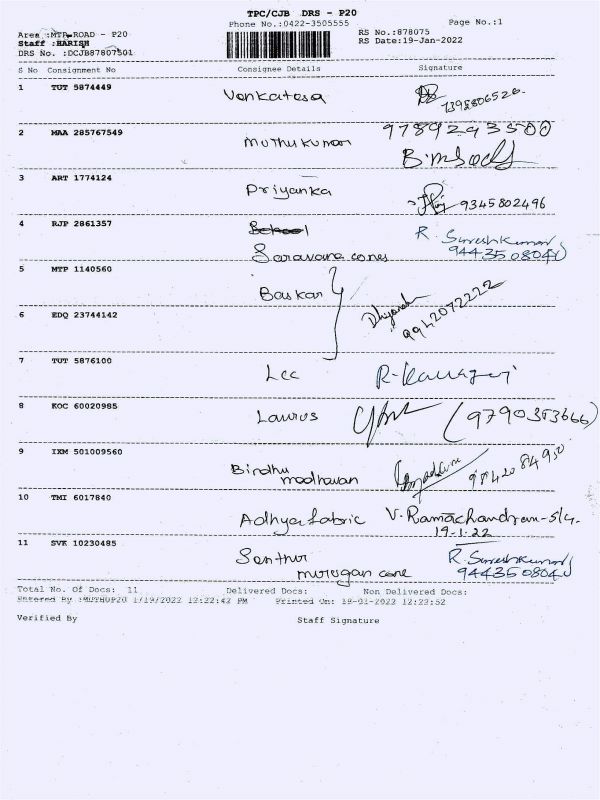 TPC/CJB DRS - P20
Phone No.:0422-3505555 Page No.:1
Area :MTP ROAD - P20 RS No.:878075
Staff :HARISH RS Date:19-Jan-2022
DRS No. :DCJB87807501
S No Consignment No Consignee Details Signature
1 TUT 5874449 Venkatesa 7398806526
2 MAA 285767549 Muthukumar 9789243500
3 ART 1774124 Priyanka 9345802496
4 RJP 2861357 School R. Sureshkumar
Saravana cones 9443508040
5 MTP 1140560 Baskar
6 EDQ 23744142 9942072222
7 TUT 5876100 Lee
8 KOC 60020985 Laurus (9790353666)
9 IXM 501009560 Bindhu madhavan 9842084950
10 TMI 6017840 Adhya fabric V. Ramachandran
19-1-22
11 SVK 10230485 Senthur R. Sureshkumar
murugan cone 9443508040
Total No. Of Docs: 11 Delivered Docs: Non Delivered Docs:
Entered By :MUTHUP20 1/19/2022 12:22:42 PM Printed On: 19-01-2022 12:23:52
Verified By Staff Signature